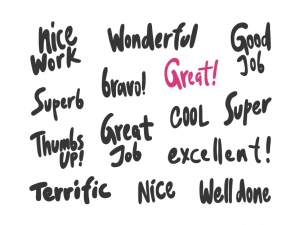 nice
work
Wonderful
Good
Job
bravo!
Great!
Superb
Great
Job
COOL
Super
Thumbs
UP!
excellent!
Terrific
Nice
Well done